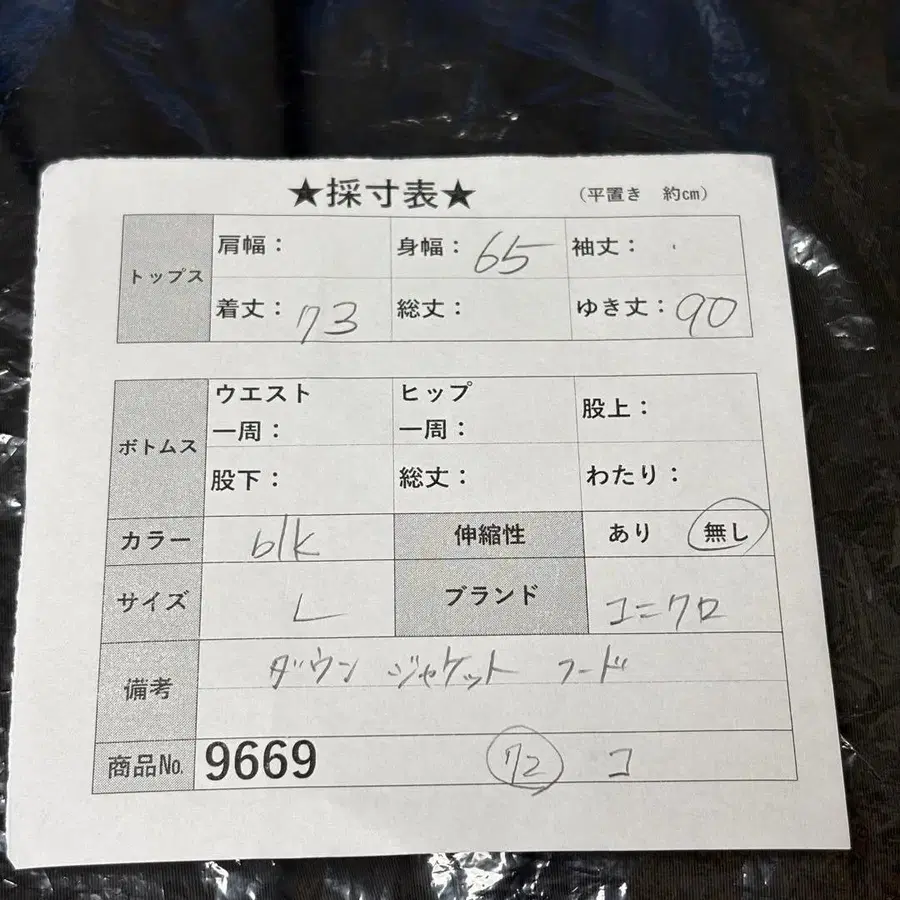 ★採寸表★ (平置き 約㎝)
トップス 肩幅： 身幅：65 袖丈：
着丈：73 総丈： ゆき丈：90
ボトムス ウエスト一周： ヒップ一周： 股上：
股下： 総丈： わたり：
カラー blk 伸縮性 あり 無し
サイズ L ブランド ユニクロ
備考 ダウン ジャケット フード
商品No. 9669 72 コ